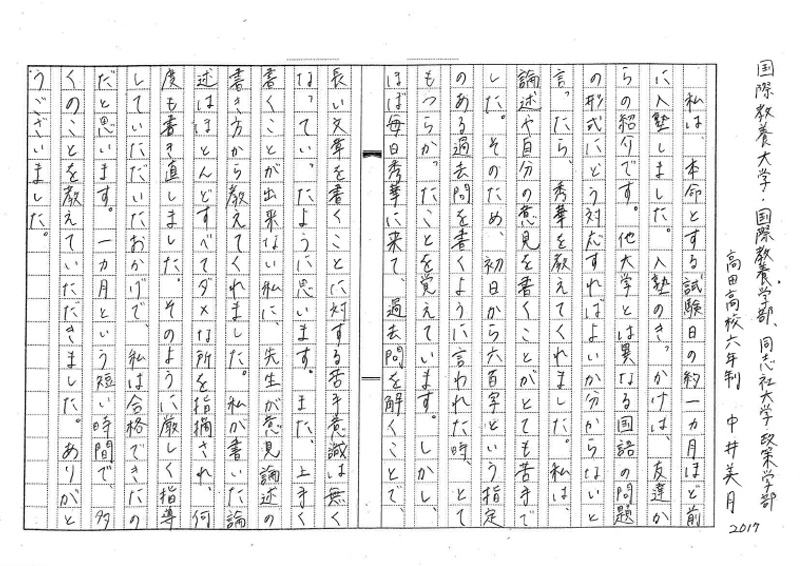 国際教養大学・国際教養学部、同志社大学 政策学部
高田高校六年制 中井美月
2017
私は、本命とする試験日の約一カ月ほど前
に入塾しました。入塾のきっかけは、友達か
らの紹介です。他大学とは異なる国語の問題
の形式にどう対応すればよいか分からないと
言ったら、秀華を教えてくれました。私は、
論述や自分の意見を書くことがとても苦手で
した。そのため、初日から六百字という指定
のある過去問を書くように言われた時、とて
もつらかったことを覚えています。しかし、
ほぼ毎日秀華に来て、過去問を解くことで、
長い文章を書くことに対する苦手意識は無く
なっていったように思います。また、上手く
書くことが出来ない私に、先生が意見論述の
書き方から教えてくれました。私が書いた論
述はほとんどすべてダメな所を指摘され、何
度も書き直しました。そのように厳しく指導
していただいたおかげで、私は合格できたの
だと思います。一カ月という短い時間で多
くのことを教えていただきました。ありがと
うございました。